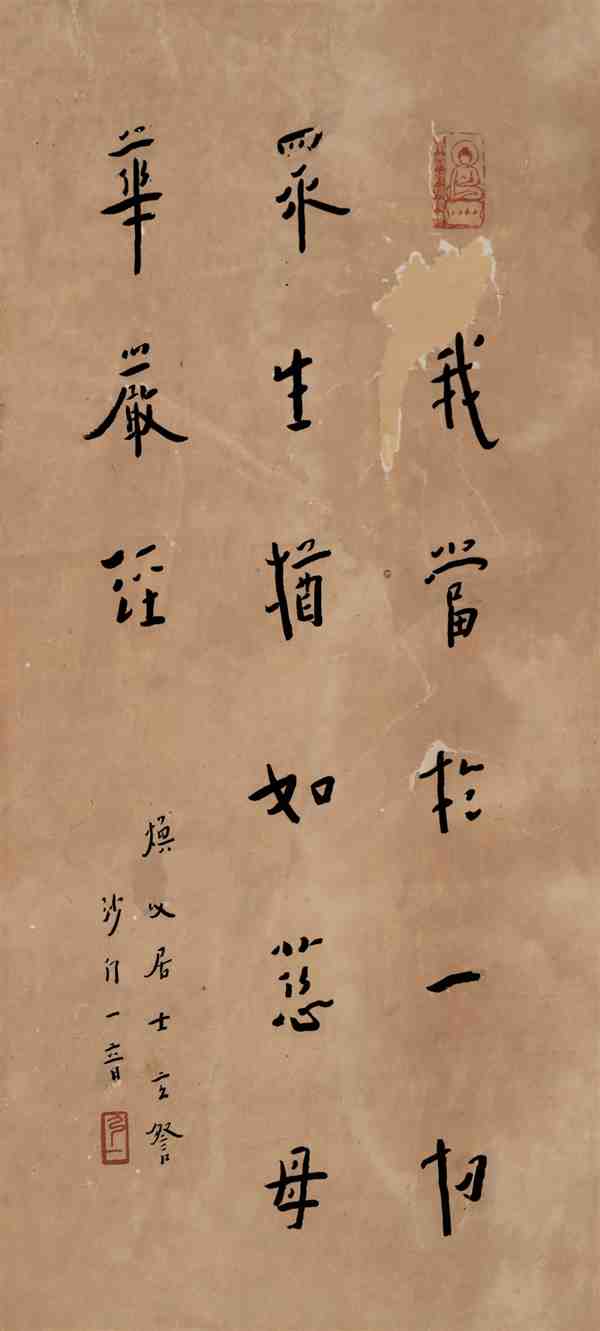 我當於一切
眾生猶如慈母
華嚴經
煥居士詧
沙門一音
弘一